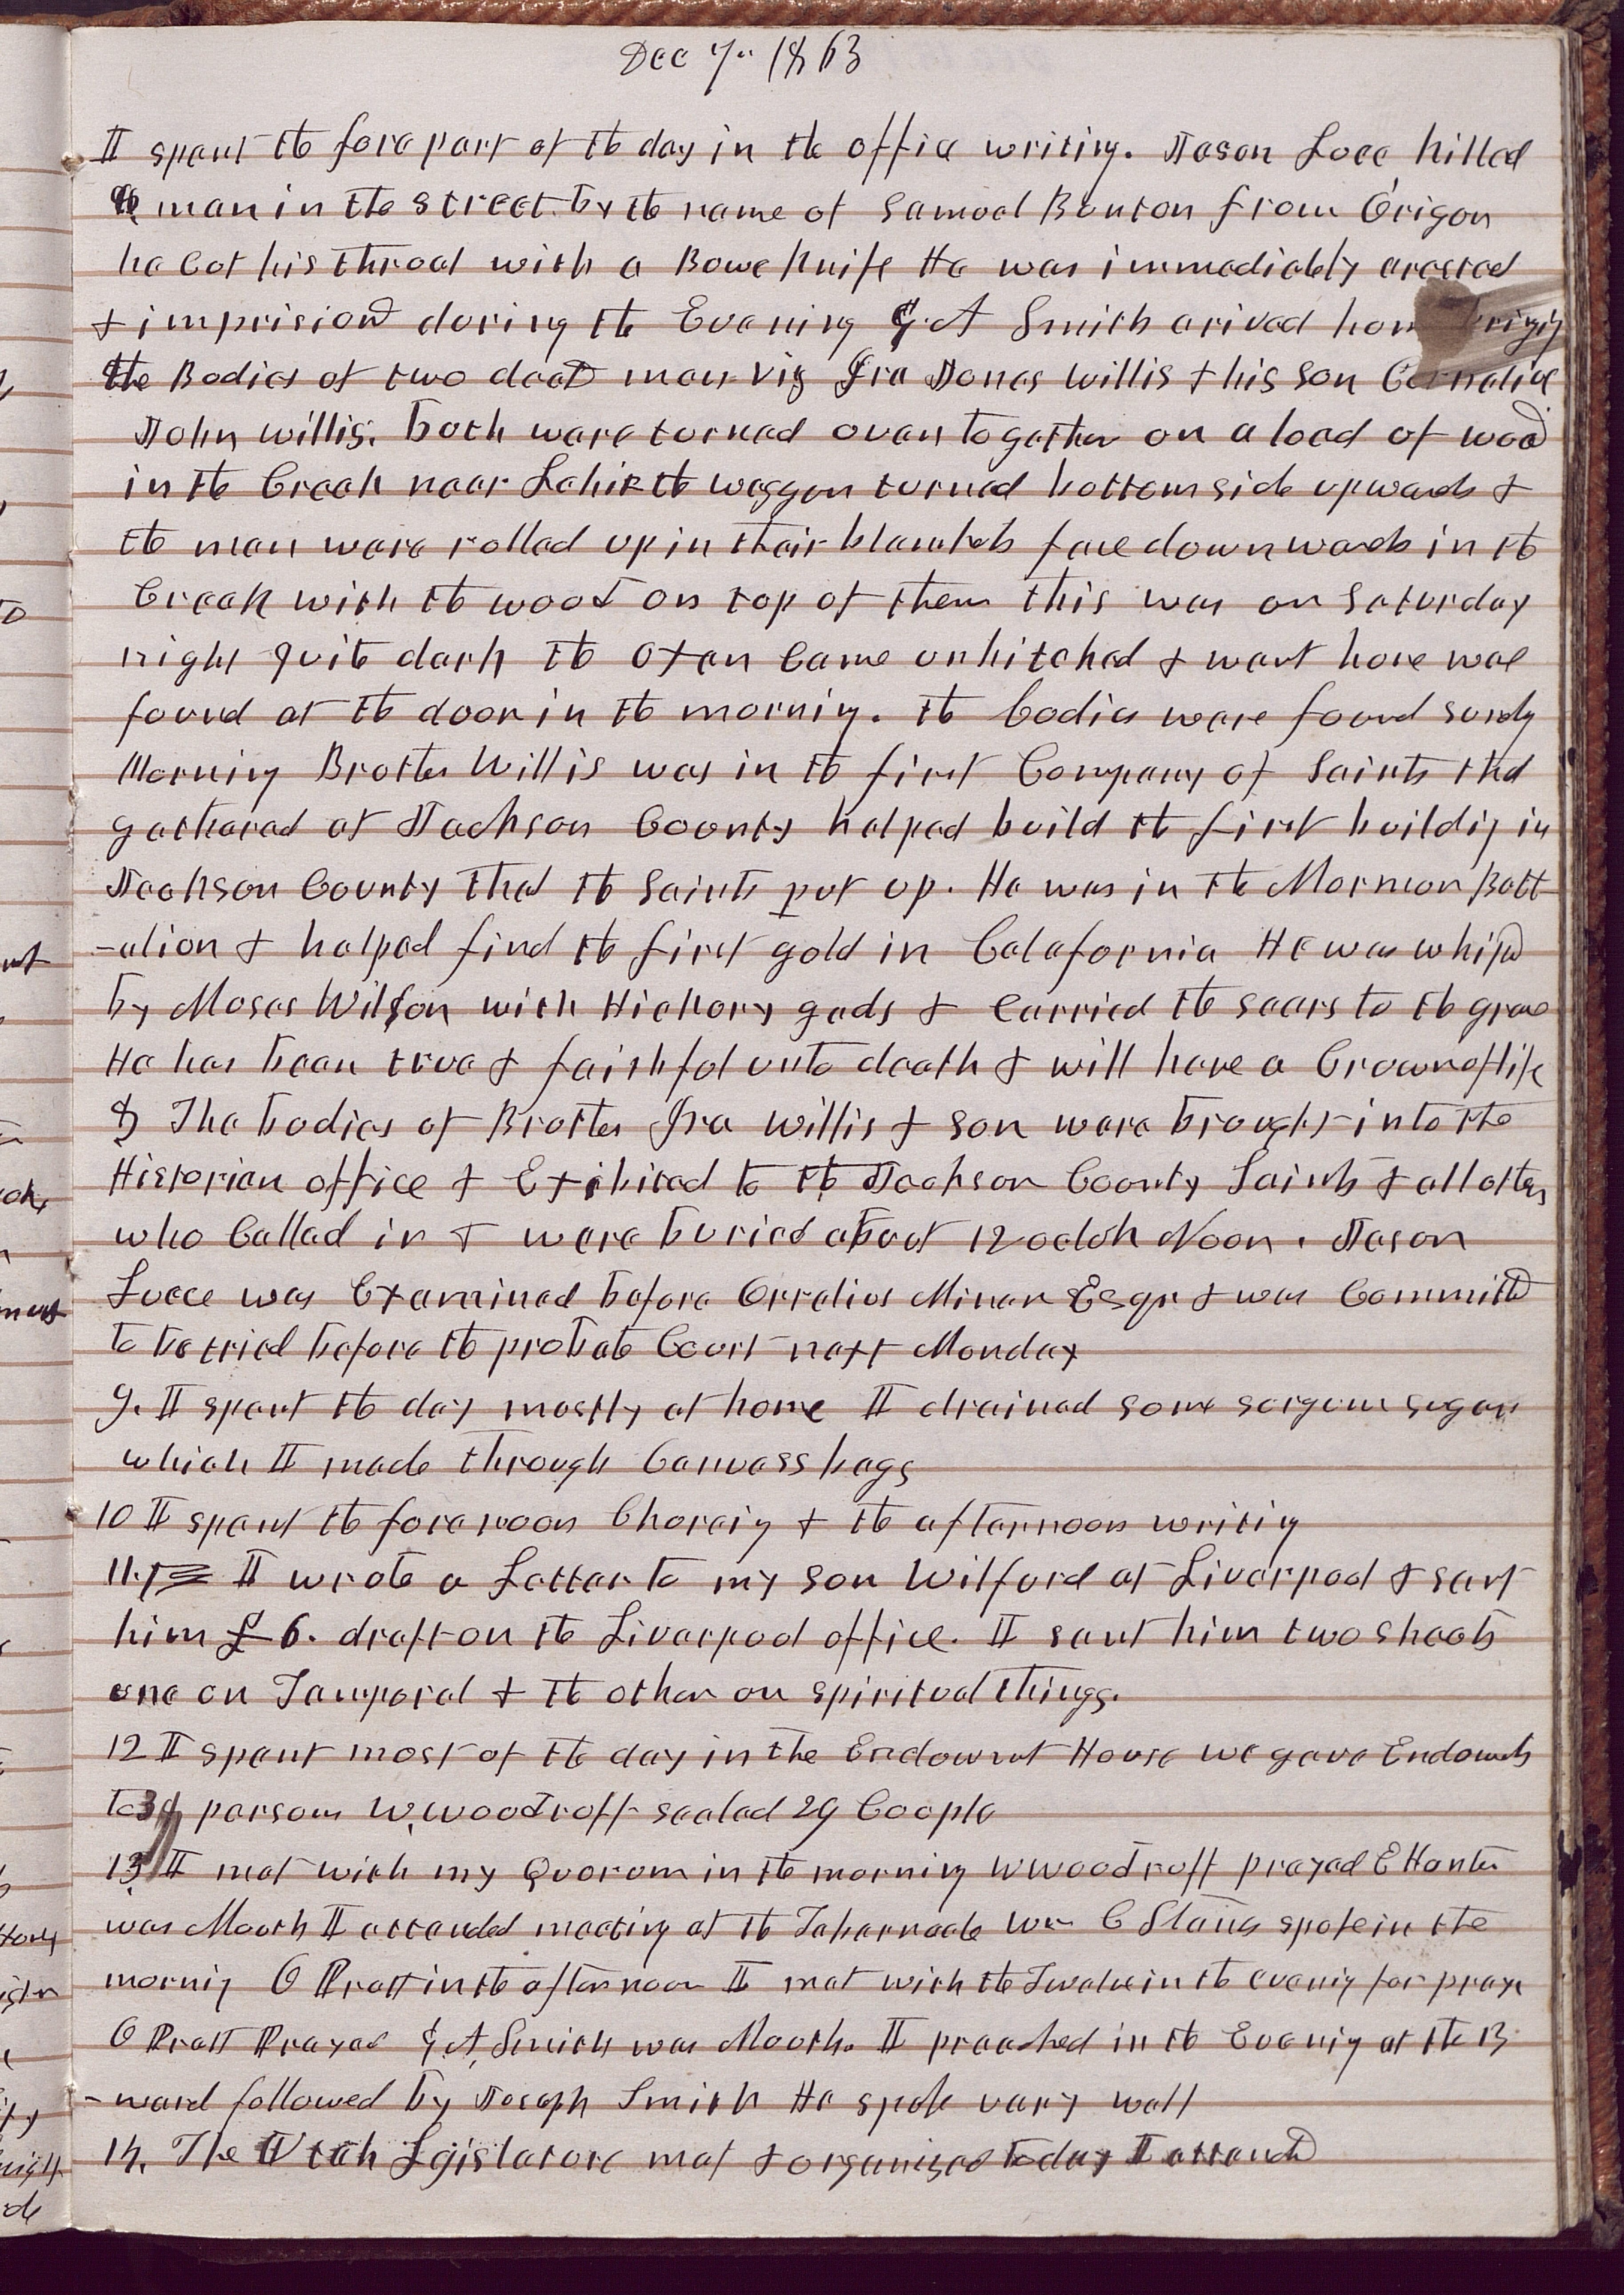 Dec 7th 1863
I spent the fore part of the day in the office writing. Jason Luce killed
a man in the street by the name of Samuel Bunton from Origon
he Cut his throat with a Bowe knife He was immediately arested
& imprisiond during the Evening G. A Smith arived home bringing
the Bodies of two dead men viz Ira Jones Willis & his son Cornelius
John Willis. both were turned over together on a load of wood
in the Creek near Lehi the waggon turned bottom side upwards &
the men were rolled up in their blankets face downwards in the
Creek with the wood on top of them this was on Saturday
night quite dark the oxen Came unhitched & went home was
found at the door in the morning. the bodies were found sundy
Morning Brother Willis was in the first Company of Saints that
gathered at Jackson County helped build the first buildig in
Jackson County that the Saints put up. He was in the Mormon Batt
-alion & helped find the first gold in Calafornia He was whipd
by Moses Wilson with Hickory gads & Carried the scars to the grave
He has been true & faithful unto death & will have a Crown of life
8 The bodies of Brother Ira Willis & son were brought into the
Historian office & Exhibited to the Jackson County Saints & all others
who Called in & were buried about 12 oclok Noon. Jason
Luce was Examined before Orrelius Minor Esqr & was Committd
to be tried before the probate Court next Monday
9. I spent the day mostly at home I drained some sorgum sugar
which I made through Canvass bags
10 I spent the forenoon Choreing & the afternoon writing
11. I wrote a Letter to my son Wilford at Liverpool & sent
him £6. draft on the Liverpool office. I sent him two sheets
one on Temporal & the other on spiritual things.
12 I spent most of the day in the Endowmt House we gave Endowmts
to 34 persons W. Woodruff sealed 29 Couple
13 I met with my Quorum in the morning W Woodruff prayed E Hunter
was Mouth I attended meeting at the Tabernacle Wm C Stains spoke in the
mornig O Pratt in the afternoon I met with the Twelve in the evenig for prayer
O Pratt Prayed G. A. Smith was Mouth. I preached in the Evenig at the 13
-ward followed by Joseph Smith He spoke very well
14. The Utah Lgislature met & organized today I attend